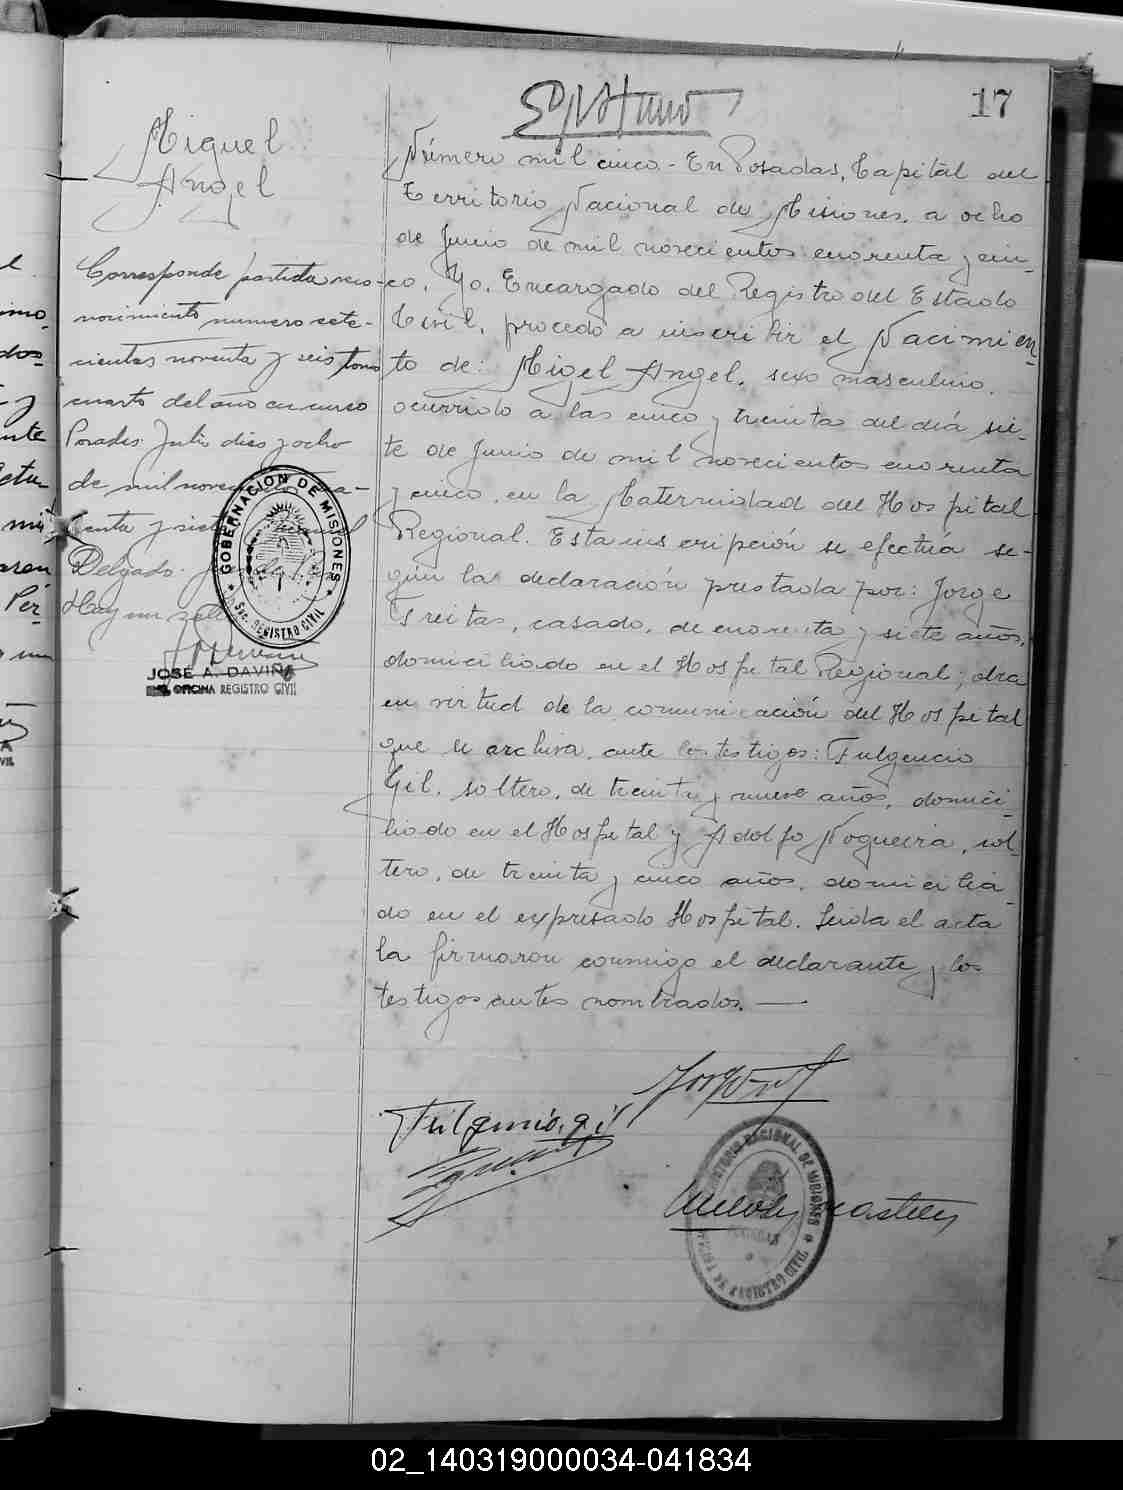 17
Miguel
Angel
Corresponde partida reco-
nocimiento numero sete-
cientos noventa y seis tomo
cuarto del año en curso
Posadas Julio diez y ocho
de mil
Delgado.
Hay un sello
GOBERNACION DE MISIONES
Sec. REGISTRO CIVIL
JOSÉ A. DAVIÑA
OFICINA REGISTRO CIVIL
Número mil cinco - En Posadas, Capital del
Territorio Nacional de Misiones, a ocho
de Junio de mil novecientos cuarenta y cin-
co, Yo, Encargado del Registro del Estado
Civil, procedo a inscribir el Nacimien
to de: Migel Angel, sexo masculino,
ocurrido a las cinco y treinta del día sie-
te de Junio de mil novecientos cuarenta
y cinco, en la Maternidad del Hospital
Regional. Esta inscripción se efectúa se-
gún la declaración prestada por: Jorge
Freitas, casado, de cuarenta y siete años,
domiciliado en el Hospital Regional; obra
en virtud de la comunicación del Hospital
que se archiva, ante los testigos: Fulgencio
Gil, soltero, de treinta y nueve años, domici-
liado en el Hospital y Adolfo Nogueira, sol-
tero, de treinta y cinco años, domicilia-
do en el expresado Hospital. Leida el acta
la firmaron conmigo el declarante y los
testigos antes nombrados.
Fulgencio Gil
TERRITORIO NACIONAL DE MISIONES
REGISTRO CIVIL
POSADAS
02_140319000034-041834